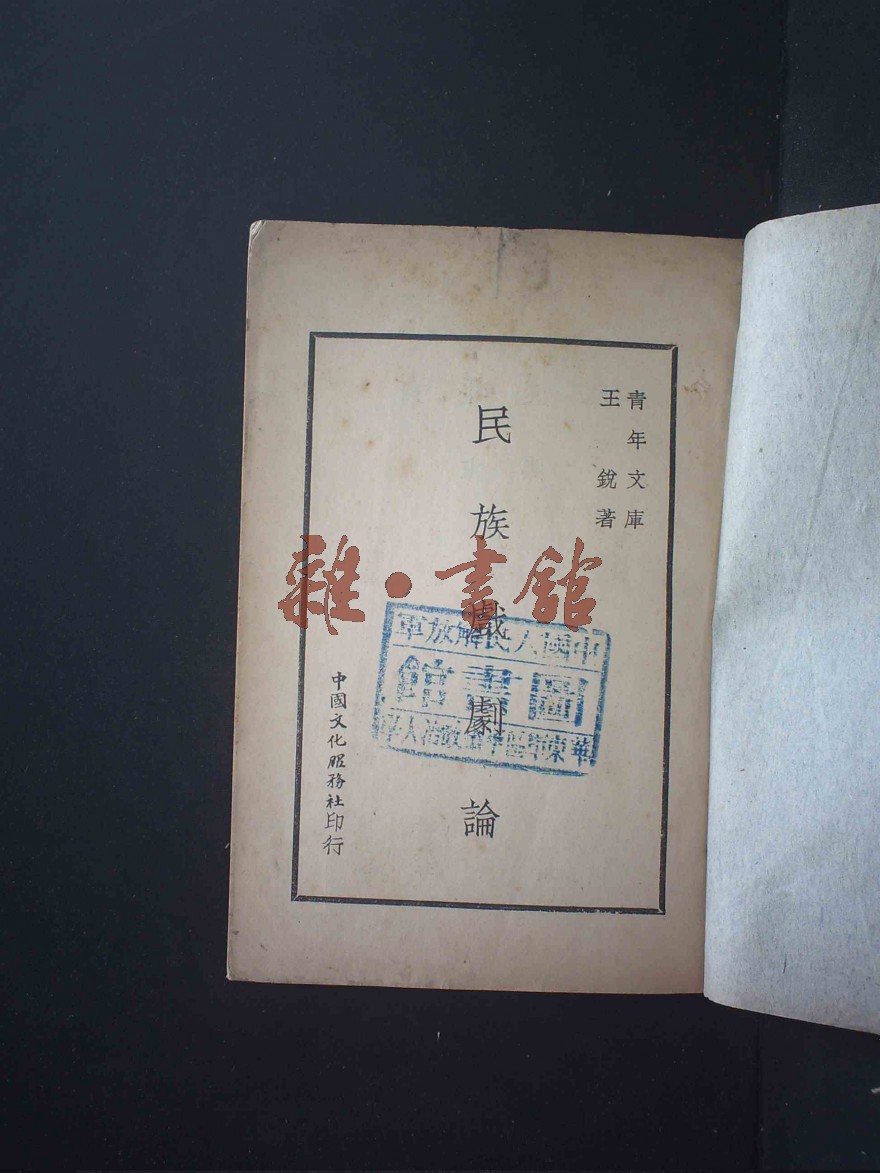 青年文庫
王銳著
民族戲劇論
中國文化服務社印行
中國人民解放軍
圖書館
華東軍區軍政治人學
雜·書館